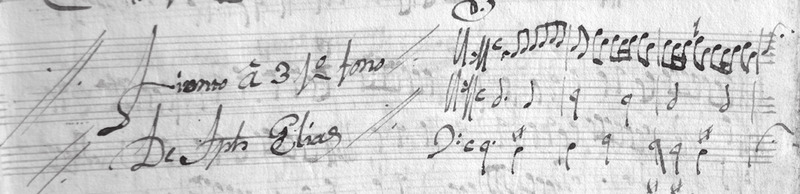 Tiento â 3 1º tono
De Jph Elias